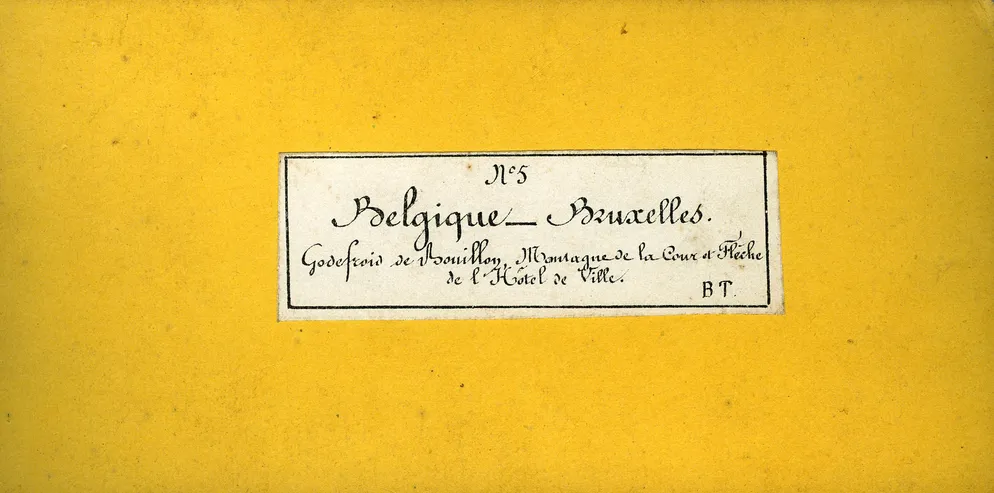 N° 5
Belgique _ Bruxelles.
Godefroid de Bouillon, Montagne de la Cour et Flèche
de l'Hôtel de Ville.
B T.